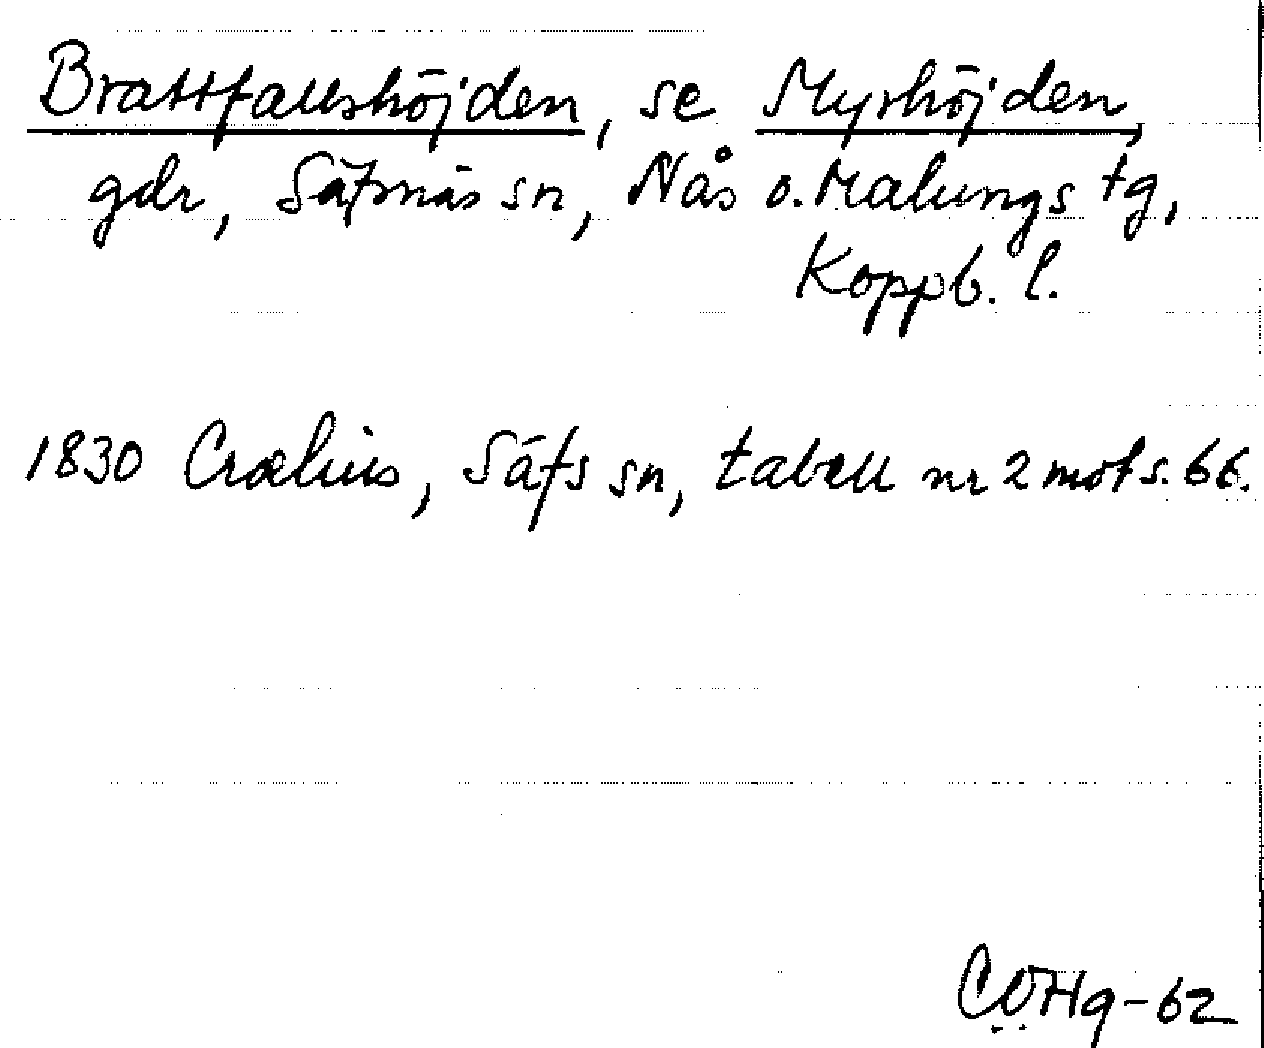 Brattfallshöjden, se Myrhöjden,
gdr, Säfsnäs sn, Nås o. Malungs tg,
Koppb. l.
1830 Crælius, Säfs sn, tabell nr 2 mot s. 66.
CÖHg-62